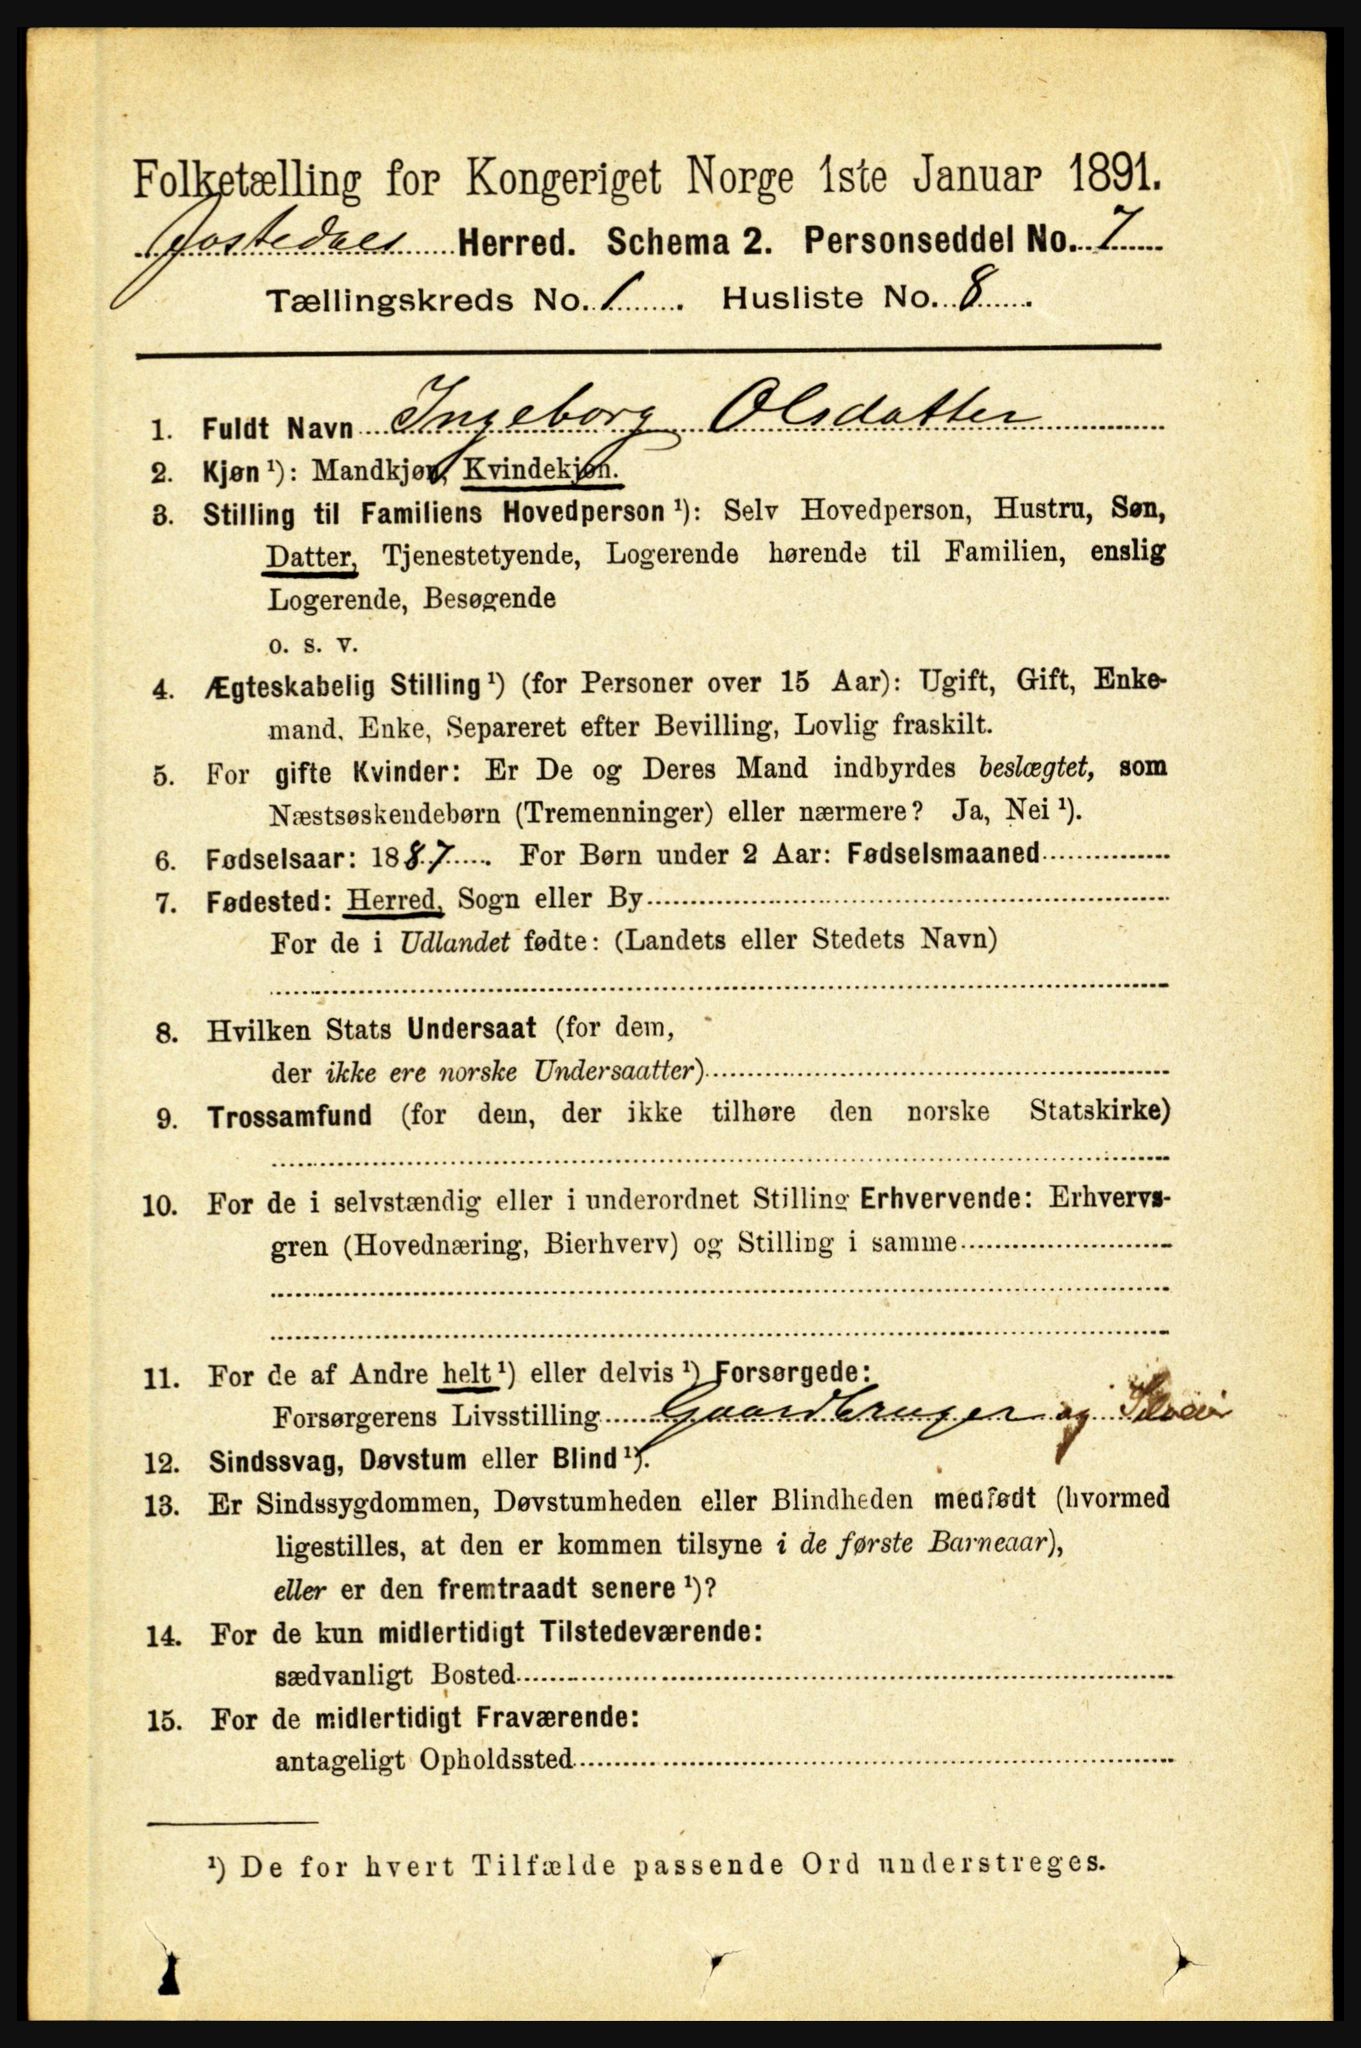 Folketælling for Kongeriget Norge 1ste Januar 1891.
Jostedals Herred. Schema 2. Personseddel No. 7
Tællingskreds No. 1. Husliste No. 8.
1. Fuldt Navn Ingeborg Olsdatter
2. Kjøn ¹): Mandkjøn, Kvindekjøn.
3. Stilling til Familiens Hovedperson ¹): Selv Hovedperson, Hustru, Søn,
Datter, Tjenestetyende, Logerende hørende til Familien, enslig
Logerende, Besøgende
o. s. v.
4. Ægteskabelig Stilling ¹) (for Personer over 15 Aar): Ugift, Gift, Enke-
mand, Enke, Separeret efter Bevilling, Lovlig fraskilt.
5. For gifte Kvinder: Er De og Deres Mand indbyrdes beslægtet, som
Næstsøskendebørn (Tremenninger) eller nærmere? Ja, Nei ¹).
6. Fødselsaar: 1887. For Børn under 2 Aar: Fødselsmaaned
7. Fødested: Herred, Sogn eller By
For de i Udlandet fødte: (Landets eller Stedets Navn)
8. Hvilken Stats Undersaat (for dem,
der ikke ere norske Undersaatter)
9. Trossamfund (for dem, der ikke tilhøre den norske Statskirke)
10. For de i selvstændig eller i underordnet Stilling Erhvervende: Erhvervs-
gren (Hovednæring, Bierhverv) og Stilling i samme
11. For de af Andre helt ¹) eller delvis ¹) Forsørgede:
Forsørgerens Livsstilling Gaardbruger og Selveier
12. Sindssvag, Døvstum eller Blind ¹).
13. Er Sindssygdommen, Døvstumheden eller Blindheden medfødt (hvormed
ligestilles, at den er kommen tilsyne i de første Barneaar),
eller er den fremtraadt senere ¹)?
14. For de kun midlertidigt Tilstedeværende:
sædvanligt Bosted
15. For de midlertidigt Fraværende:
antageligt Opholdssted
¹) De for hvert Tilfælde passende Ord understreges.